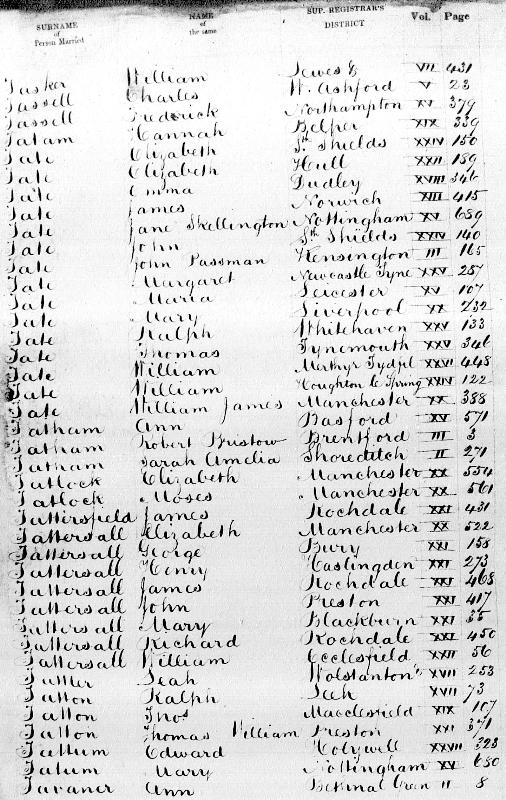 SURNAME of Person Married NAME of the same SUP. REGISTRAR'S DISTRICT Vol. Page
Tasker William Lewes VII 431
Tassell Charles W. Ashford V 23
Tassell Frederick Northampton XV 379
Tatam Hannah Belper XIX 339
Tate Elizabeth Sth Shields XXIV 150
Tate Elizabeth Hull XXII 189
Tate Emma Dudley XVIII 346
Tate James Norwich XIII 415
Tate Jane Skellington Nottingham XV 689
Tate John Sth Shields XXIV 140
Tate John Passman Kensington III 165
Tate Margaret Newcastle Tyne XXV 257
Tate Maria Leicester XV 107
Tate Mary Liverpool XX 232
Tate Ralph Whitehaven XXV 133
Tate Thomas Tynemouth XXV 346
Tate William Merthyr Tydfil XXVI 448
Tate William Houghton le Spring XXIV 122
Tate William James Manchester XX 388
Tatham Ann Basford XV 571
Tatham Robert Bristow Brentford III 3
Tatham Sarah Amelia Shoreditch II 271
Tatlock Elizabeth Manchester XX 554
Tatlock Moses Manchester XX 561
Tattersfield James Rochdale XXI 431
Tattersall Elizabeth Manchester XX 522
Tattersall George Bury XXI 158
Tattersall Henry Haslingden XXI 273
Tattersall James Rochdale XXI 468
Tattersall John Preston XXI 417
Tattersall Mary Blackburn XXI 35
Tattersall Richard Rochdale XXI 450
Tattersall William Ecclesfield XXII 56
Tattler Leah Wolstanton XVII 253
Tatton Ralph Leek XVII 73
Tatton Thos Macclesfield XIX 107
Tatton Thomas William Preston XXI 371
Tattum Edward Holywell XXVII 323
Tatum Mary Nottingham XV 680
Tavaner Ann Bethnal Green II 8